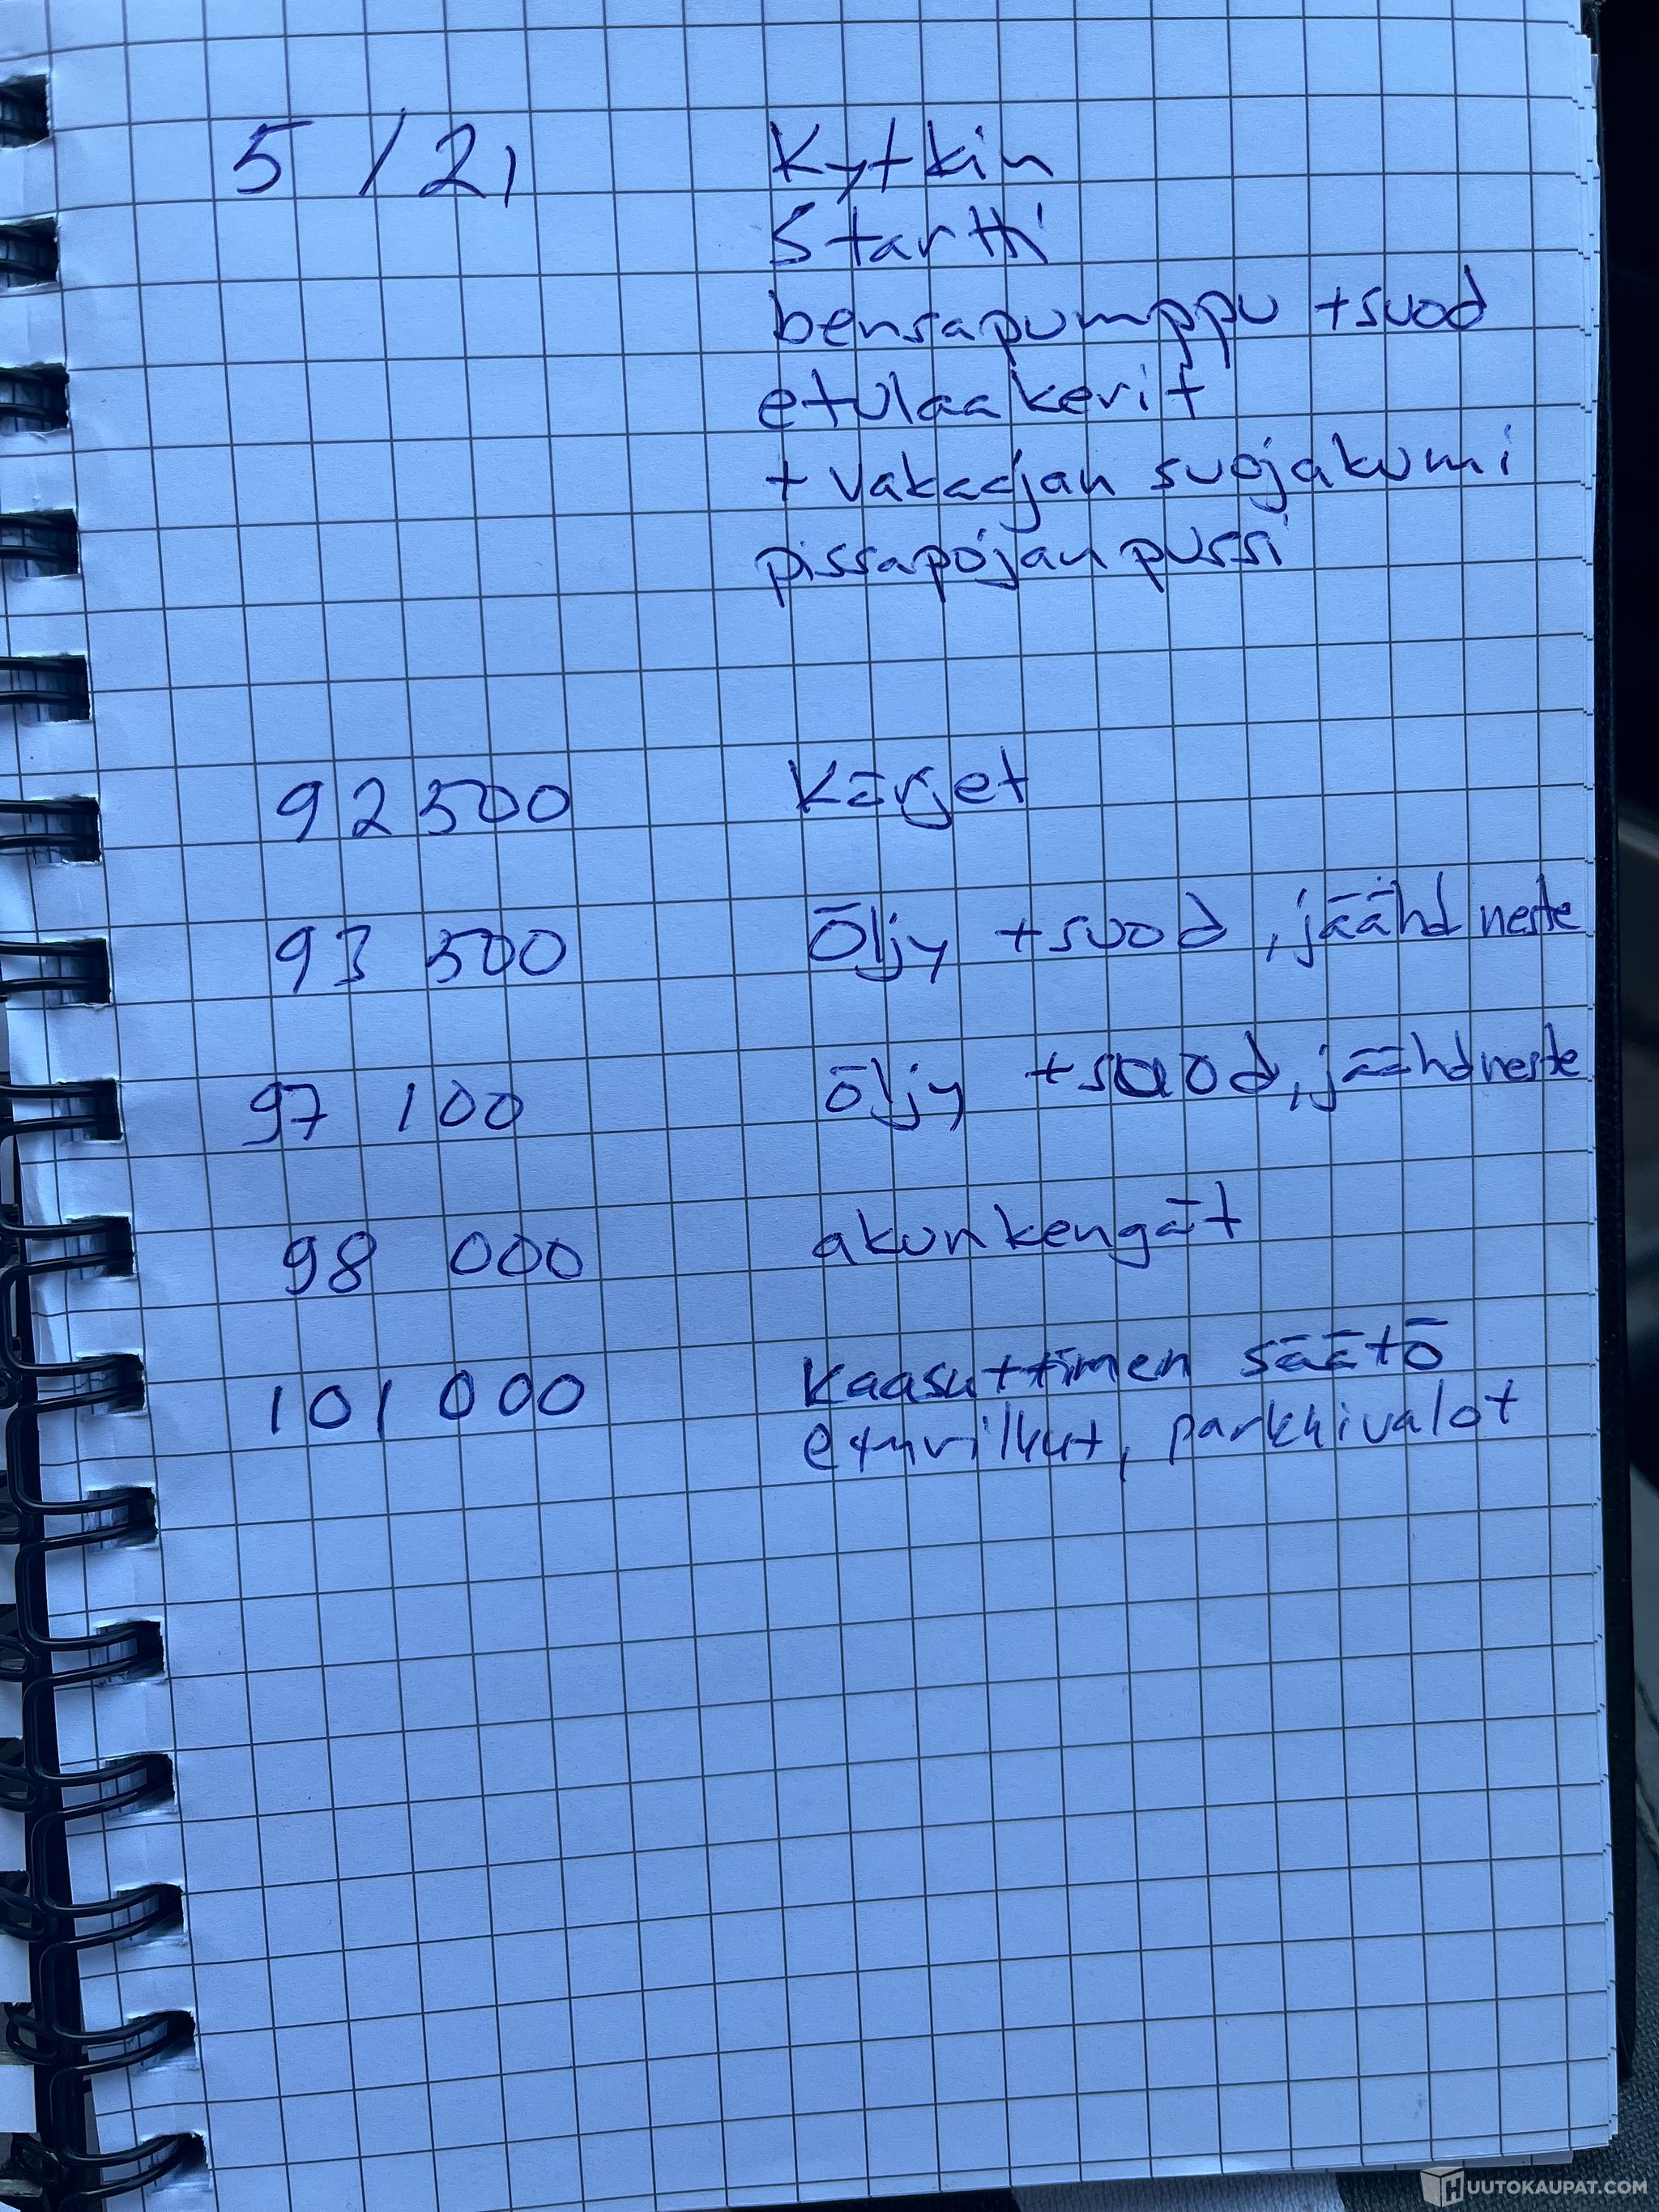 5 / 21 Kytkin
Startti
bensapumppu +suod
etulaakerit
+ vakaajan suojakumi
pissapojan pussi
92 500 Kärjet
93 500 Öljy +suod, jäähd neste
97 100 öljy +suod, jäähd neste
98 000 akunkengät
101 000 Kaasuttimen säätö
etuvilkut, parkkivalot
HUUTOKAUPAT.COM